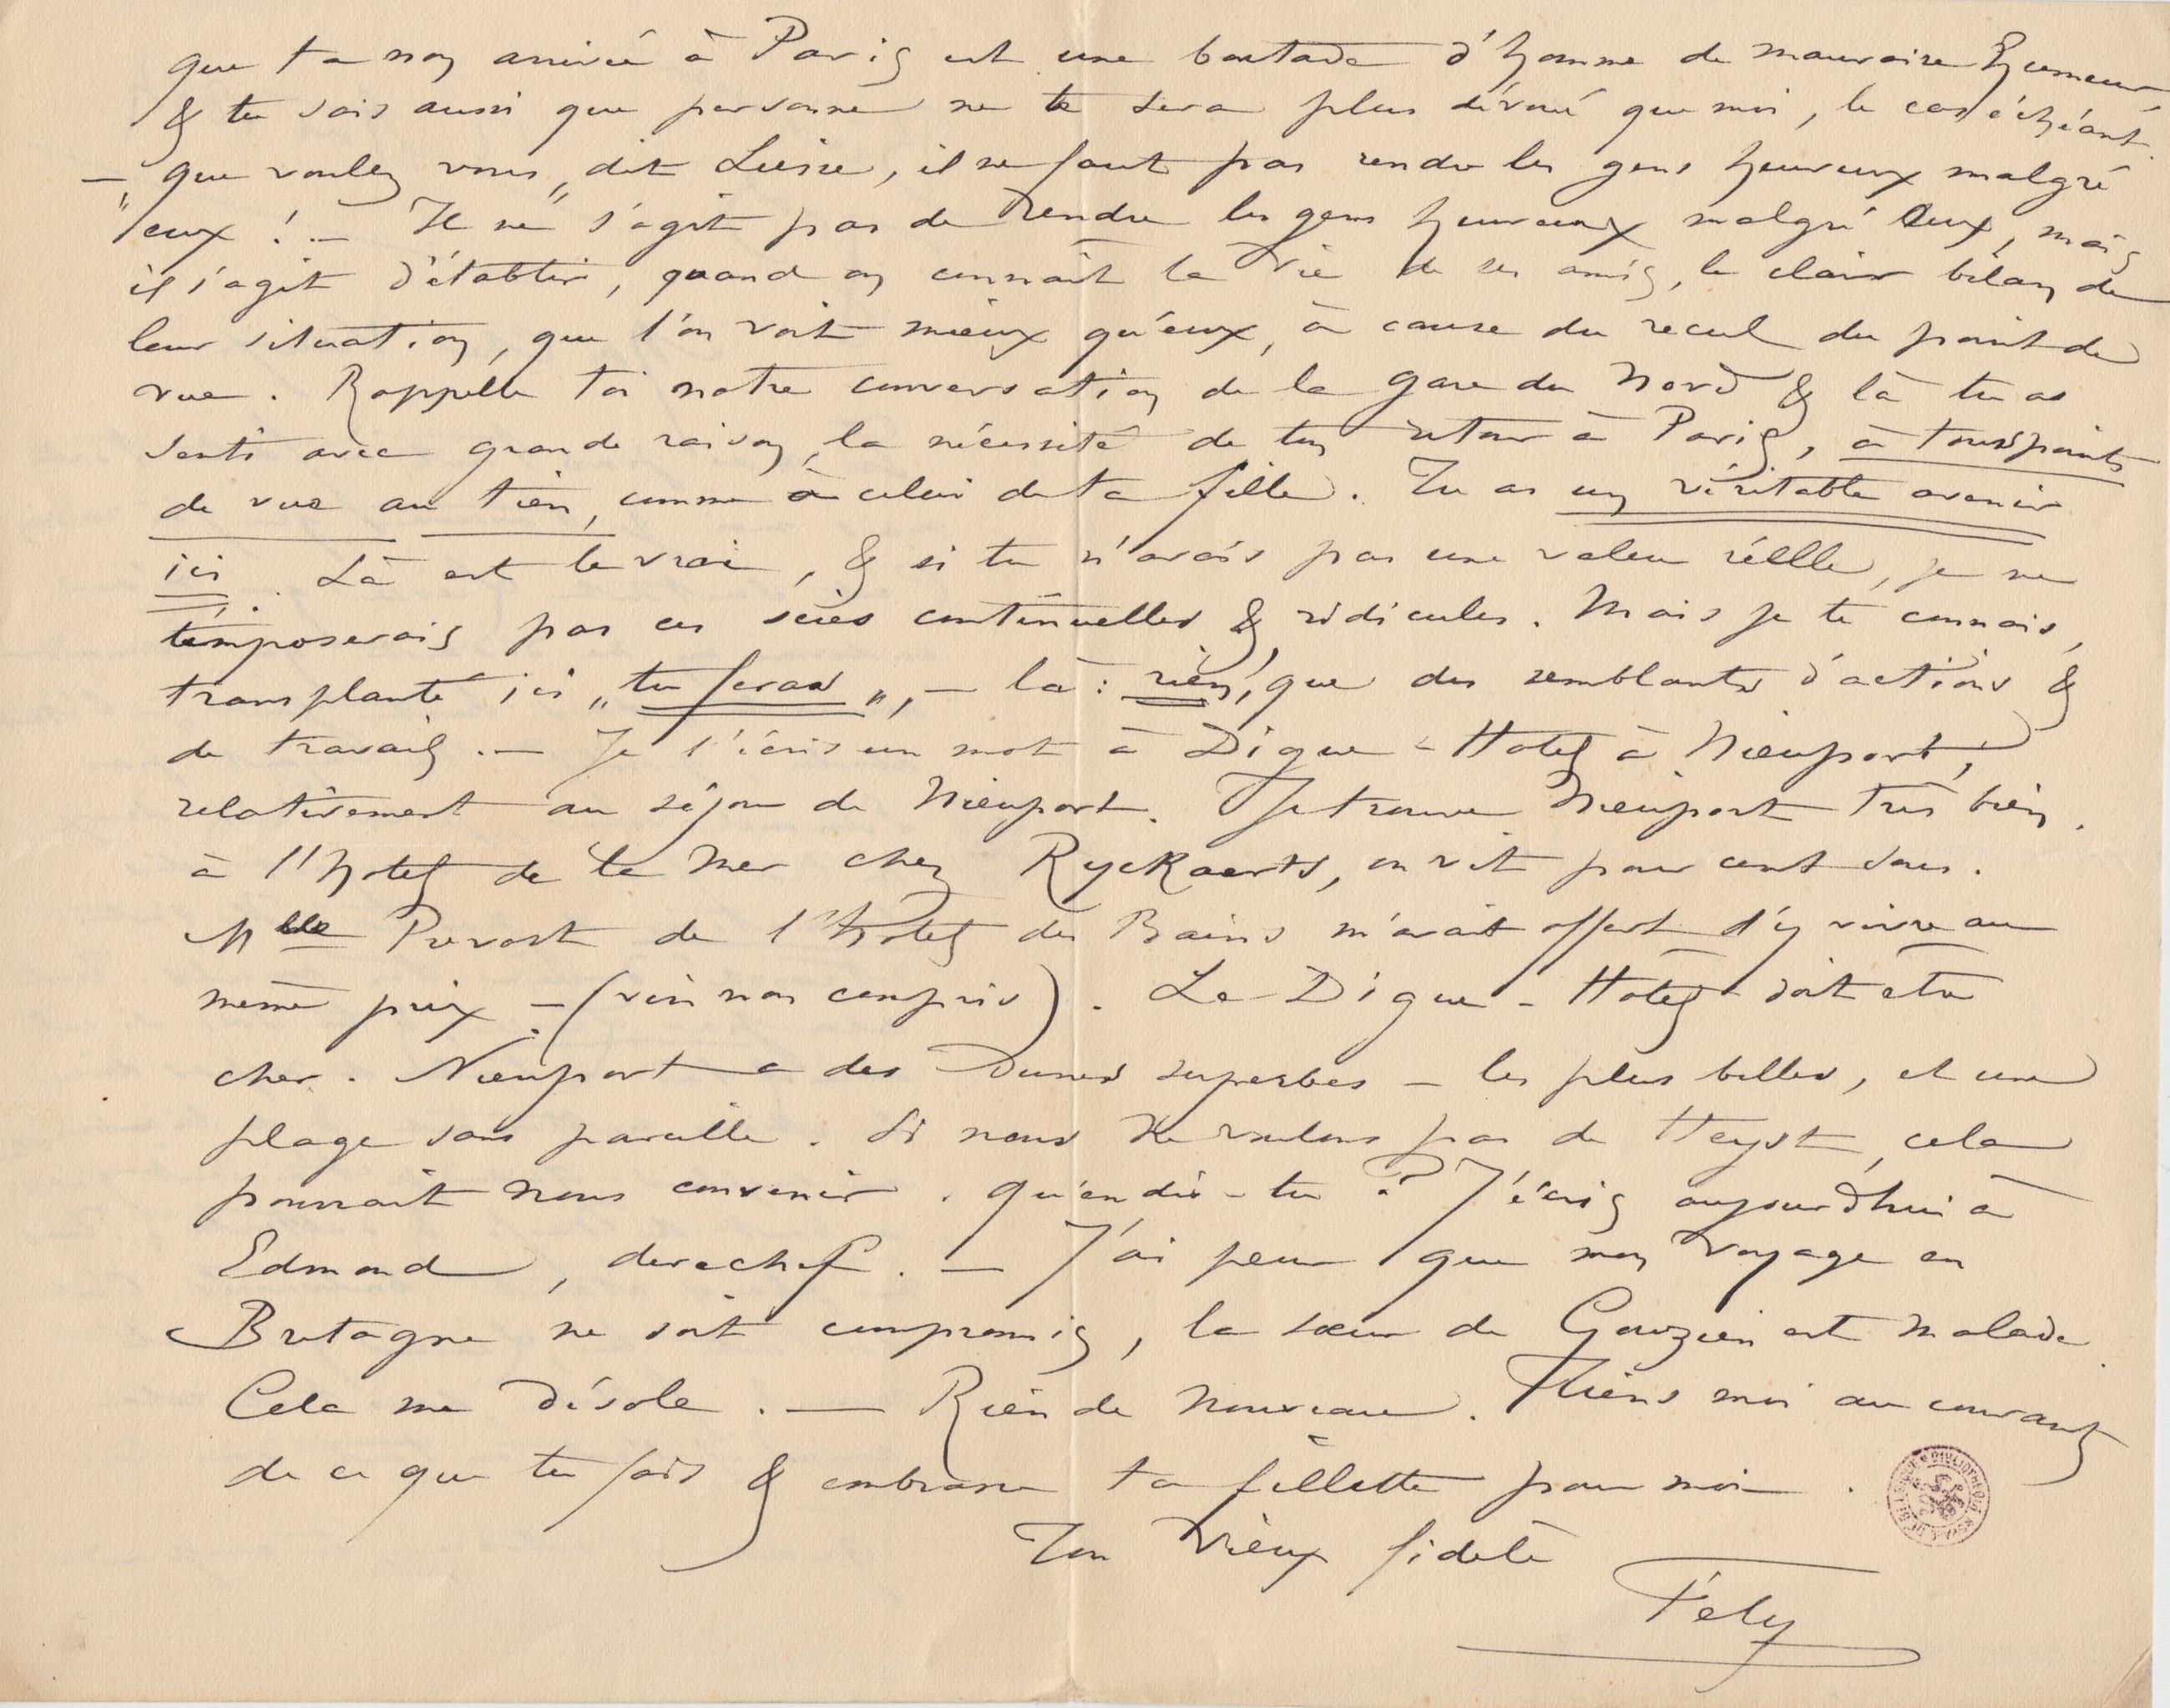 que ta non arrivée à Paris est une boutade d'homme de mauvaise humeur,
& tu sais aussi que personne ne te sera plus dévoué que moi, le cas échéant.
— "que voulez vous" dit Luisse, il ne faut pas rendre les gens heureux malgré
"eux ! — Il ne s'agit pas de rendre les gens heureux malgré eux, mais
il s'agit d'établir, quand on connait la vie de ses amis, le clair bilan de
leur situation, que l'on voit mieux qu'eux, à cause du recul du point de
vue. Rappelle toi notre conversation de la gare du Nord & là tu as
senti avec grande raison, la nécessité de ton retour à Paris, à tous points
de vue au tien, comme à celui de ta fille. Tu as un véritable avenir
ici. Là est le vrai, & si tu n'avais pas une valeur réelle, je ne
t'imposerais pas ces scies continuelles & ridicules. Mais je te connais,
transplanté ici „tu feras", — là : rien, que des semblants d'actions &
de travail. — Je t'écris un mot à Digue-Hotel à Nieuport,
relativement au séjour de Nieuport. Je trouve Nieuport très bien.
à l'hotel de la Mer chez Ryckaerts, on vit pour cent sous.
Mlle Prevost de l'hotel des Bains m'avait offert d'y vivre au
même prix — (vin non compris). Le Digue-Hôtel doit être
cher. Nieuport a des Dunes superbes — les plus belles, et une
plage sans pareille. Si nous ne voulons pas de Heyst, cela
pourrait nous convenir. Qu'en dis-tu ? J'écris aujourd'hui à
Edmond, derechef. — J'ai peur que mon voyage en
Bretagne ne soit compromis, la sœur de Gouzien est malade.
Cela me désole. — Rien de nouveau. Tiens moi au courant
de ce que tu fais & embrasse ta fillette pour moi.
Ton vieux fidèle
Fély